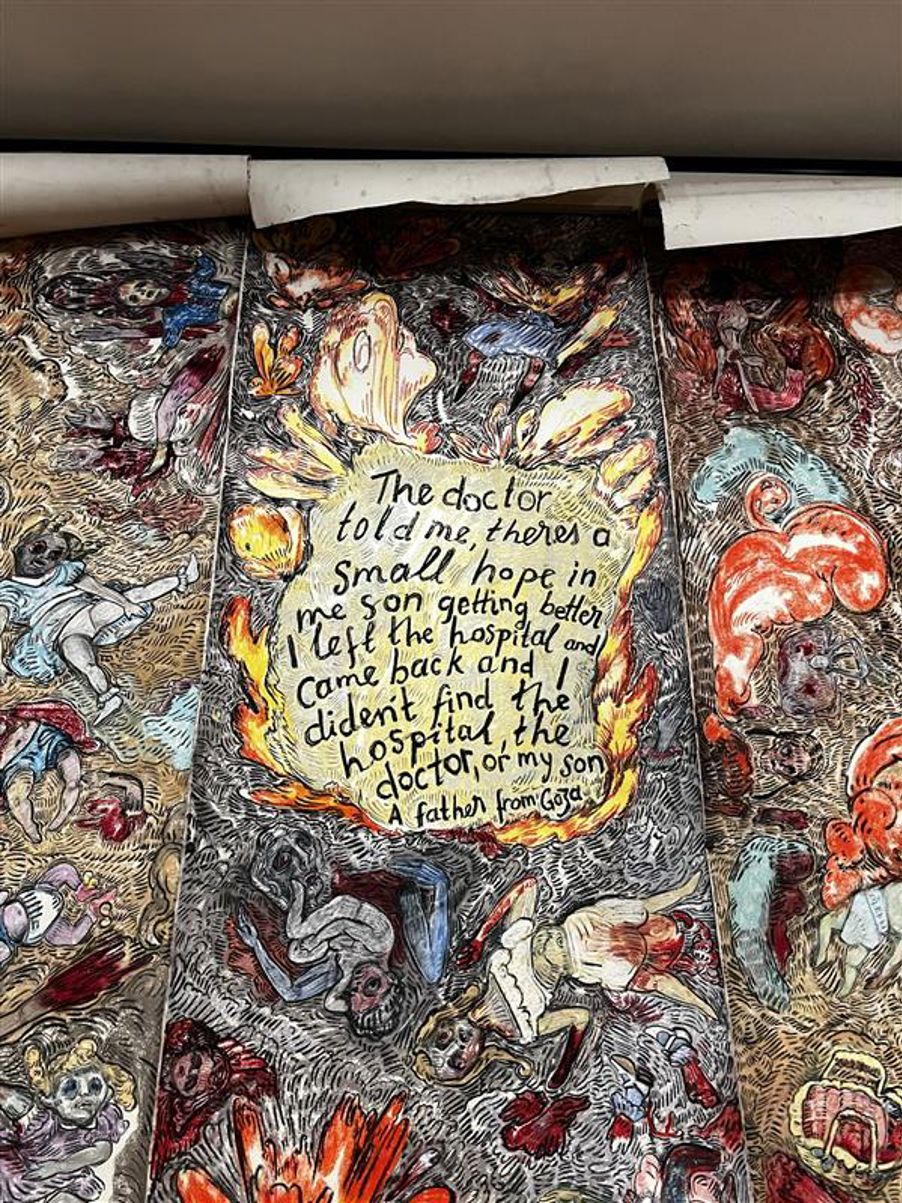 The doctor
told me, theres a
small hope in
me son getting better
I left the hospital and
Came back and I
diden't find the
hospital, the
doctor, or my son
A father from Goza